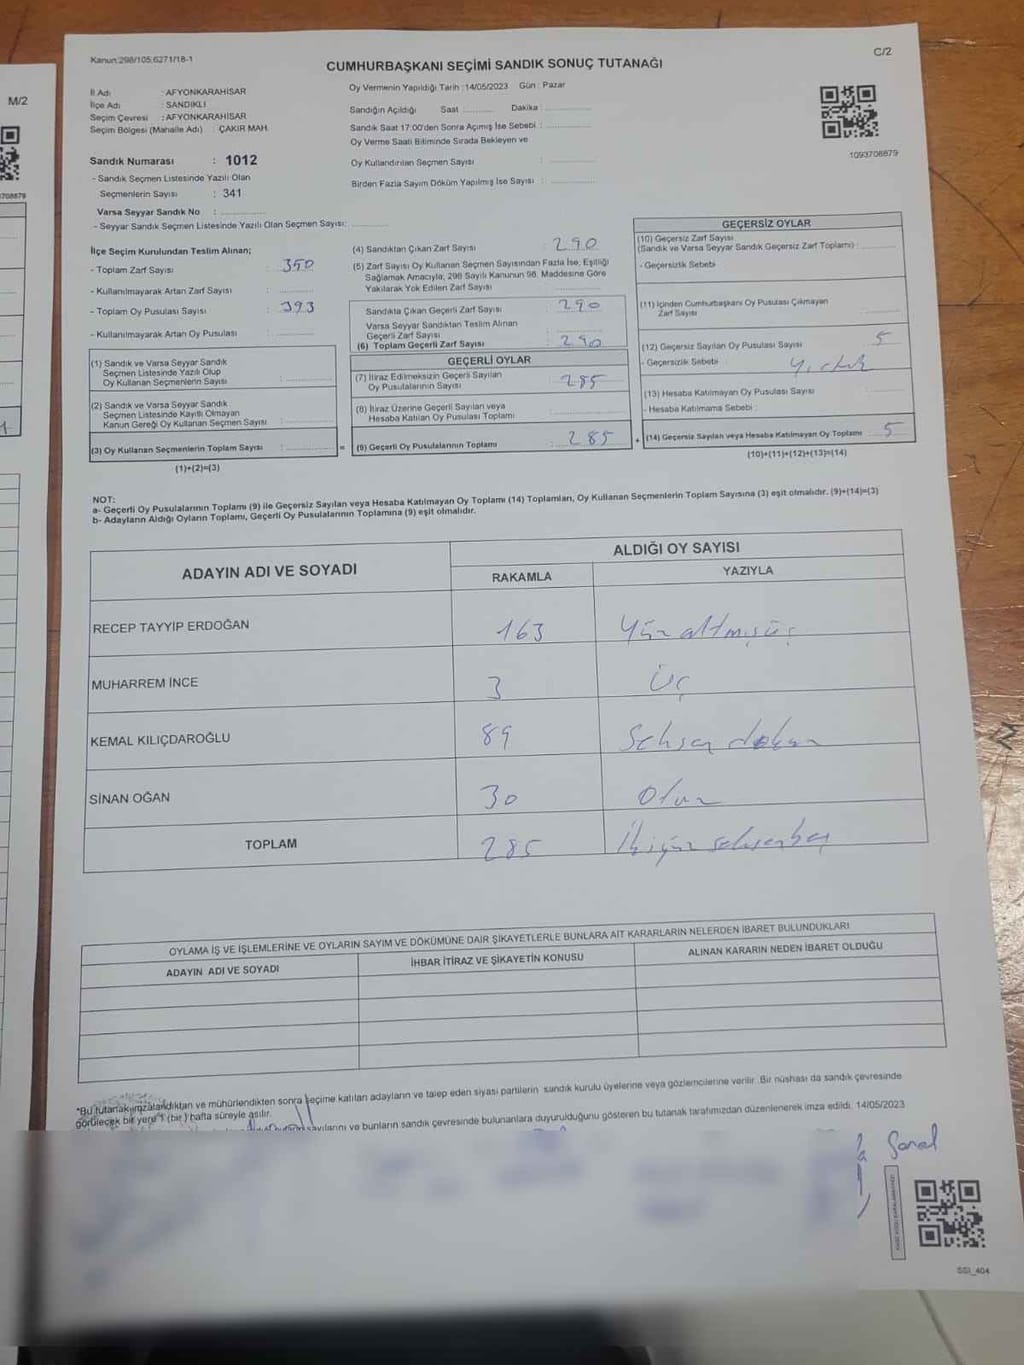 M/2
Kanun:298/105;6271/18-1
C/2
CUMHURBAŞKANI SEÇİMİ SANDIK SONUÇ TUTANAĞI
İl Adı : AFYONKARAHİSAR
İlçe Adı : SANDIKLI
Seçim Çevresi : AFYONKARAHİSAR
Seçim Bölgesi (Mahalle Adı) : ÇAKIR MAH.
Sandık Numarası : 1012
- Sandık Seçmen Listesinde Yazılı Olan
Seçmenlerin Sayısı : 341
Varsa Seyyar Sandık No :
- Seyyar Sandık Seçmen Listesinde Yazılı Olan Seçmen Sayısı:
Oy Vermenin Yapıldığı Tarih :14/05/2023 Gün : Pazar
Sandığın Açıldığı Saat Dakika
Sandık Saat 17:00'den Sonra Açımış İse Sebebi :
Oy Verme Saati Bitiminde Sırada Bekleyen ve
Oy Kullandırılan Seçmen Sayısı :
Birden Fazla Sayım Döküm Yapılmış İse Sayısı :
1093708879
İlçe Seçim Kurulundan Teslim Alınan;
- Toplam Zarf Sayısı : 350
- Kullanılmayarak Artan Zarf Sayısı :
- Toplam Oy Pusulası Sayısı : 393
- Kullanılmayarak Artan Oy Pusulası :
(1) Sandık ve Varsa Seyyar Sandık
Seçmen Listesinde Yazılı Olup
Oy Kullanan Seçmenlerin Sayısı :
(2) Sandık ve Varsa Seyyar Sandık
Seçmen Listesinde Kayıtlı Olmayan
Kanun Gereği Oy Kullanan Seçmen Sayısı :
(3) Oy Kullanan Seçmenlerin Toplam Sayısı :
(1)+(2)=(3)
(4) Sandıktan Çıkan Zarf Sayısı : 290
(5) Zarf Sayısı Oy Kullanan Seçmen Sayısından Fazla İse, Eşitliği
Sağlamak Amacıyla, 298 Sayılı Kanunun 98. Maddesine Göre
Yakılarak Yok Edilen Zarf Sayısı :
Sandıkta Çıkan Geçerli Zarf Sayısı : 290
Varsa Seyyar Sandıktan Teslim Alınan
Geçerli Zarf Sayısı
(6) Toplam Geçerli Zarf Sayısı : 290
GEÇERLİ OYLAR
(7) İtiraz Edilmeksizin Geçerli Sayılan
Oy Pusulalarının Sayısı : 285
(8) İtiraz Üzerine Geçerli Sayılan veya
Hesaba Katılan Oy Pusulası Toplamı :
= (9) Geçerli Oy Pusulalarının Toplamı : 285
GEÇERSİZ OYLAR
(10) Geçersiz Zarf Sayısı
(Sandık ve Varsa Seyyar Sandık Geçersiz Zarf Toplamı) :
- Geçersizlik Sebebi
(11) İçinden Cumhurbaşkanı Oy Pusulası Çıkmayan
Zarf Sayısı
(12) Geçersiz Sayılan Oy Pusulası Sayısı : 5
- Geçersizlik Sebebi :
(13) Hesaba Katılmayan Oy Pusulası Sayısı :
- Hesaba Katılmama Sebebi :
+ (14) Geçersiz Sayılan veya Hesaba Katılmayan Oy Toplamı : 5
(10)+(11)+(12)+(13)=(14)
NOT:
a- Geçerli Oy Pusulalarının Toplamı (9) ile Geçersiz Sayılan veya Hesaba Katılmayan Oy Toplamı (14) Toplamları, Oy Kullanan Seçmenlerin Toplam Sayısına (3) eşit olmalıdır. (9)+(14)=(3)
b- Adayların Aldığı Oyların Toplamı, Geçerli Oy Pusulalarının Toplamına (9) eşit olmalıdır.
ADAYIN ADI VE SOYADI ALDIĞI OY SAYISI
RAKAMLA YAZIYLA
RECEP TAYYİP ERDOĞAN 163 Yüz altmışüç
MUHARREM İNCE 3 Üç
KEMAL KILIÇDAROĞLU 89 Seksen dokuz
SİNAN OĞAN 30 Otuz
TOPLAM 285 İkiyüz seksenbeş
OYLAMA İŞ VE İŞLEMLERİNE VE OYLARIN SAYIM VE DÖKÜMÜNE DAİR ŞİKAYETLERLE BUNLARA AİT KARARLARIN NELERDEN İBARET BULUNDUKLARI
ADAYIN ADI VE SOYADI İHBAR İTİRAZ VE ŞİKAYETİN KONUSU ALINAN KARARIN NEDEN İBARET OLDUĞU
"Bu tutanak imzalandıktan ve mühürlendikten sonra seçime katılan adayların ve talep eden siyasi partilerin sandık kurulu üyelerine veya gözlemcilerine verilir. Bir nüshası da sandık çevresinde
görülecek bir yere 1 (bir) hafta süreyle asılır.
sayılarını ve bunların sandık çevresinde bulunanlara duyurulduğunu gösteren bu tutanak tarafımızdan düzenlenerek imza edildi. 14/05/2023
SSI_404